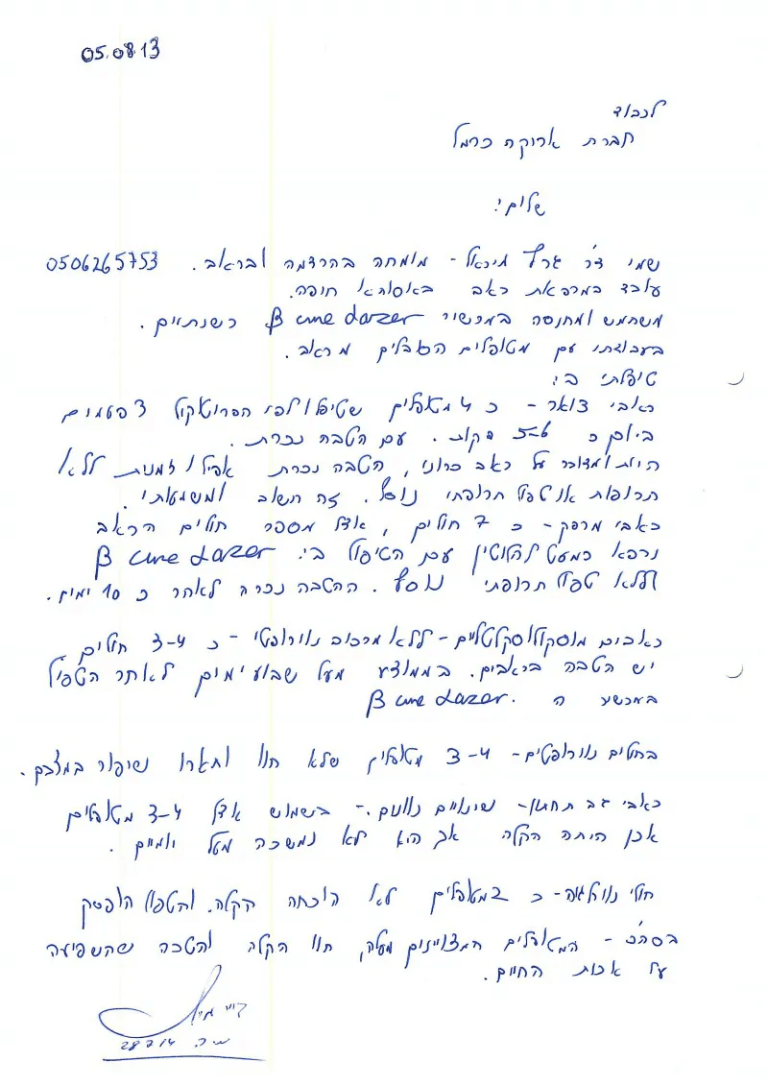 05.08.13
לכבוד
חברת ארוקה כרמל
שלום!
שמי ד״ר גרץ מיראל - מומחה בהרדמה ובכאב. 0506265753
עובד במרפאת כאב באסותא חיפה.
משתמש ומתנסה במכשיר B cure Lazer כשנתיים.
בעבודתי עם מטופלים הסובלים מכאב.
טיפלתי ב:
כאבי צואר - כ 4 מטופלים שטיפלו לפי הפרוטוקול 3 פעמים
ביום כ 5-6 דקות. עם הטבה נכרת.
היות ומדובר על כאב כרוני, הטבה נכרת אפילו זמנית ללא
תרופות או טפול תרופתי נוסף. זה חשוב ומשמעותי.
כאבי מרפק - כ 7 חולים, אצל מספר חולים הכאב
נרפא כמעט לחלוטין עם הטיפול ב: B cure Lazer
וללא טפול תרופתי נוסף. ההטבה נכרה לאחר כ 10 ימים.
כאבים מוסקולוסקלטליים - ללא מרכיב נוירופטי - כ 3-4 חולים
יש הטבה בכאבים. בממוצע מעל שבוע ימים לאחר הטפול
במכשיר ה B cure Lazer.
בחולים נוירופטים - 3-4 מטופלים שלא חוו ותארו שיפור במצבם.
כאבי גב תחתון - שינויים נוונים - בשמוש אצל 3-4 מטופלים
אכן היתה הקלה אך היא לא נמשכה מעל יומיים.
חולי נוירלגיה - כ 2 מטופלים לא הוכחה הקלה. והטפול הופסק
בסה״כ - המטופלים המצויינים מעלה, חוו הקלה והטבה שהשפיעה
על אכות החיים.